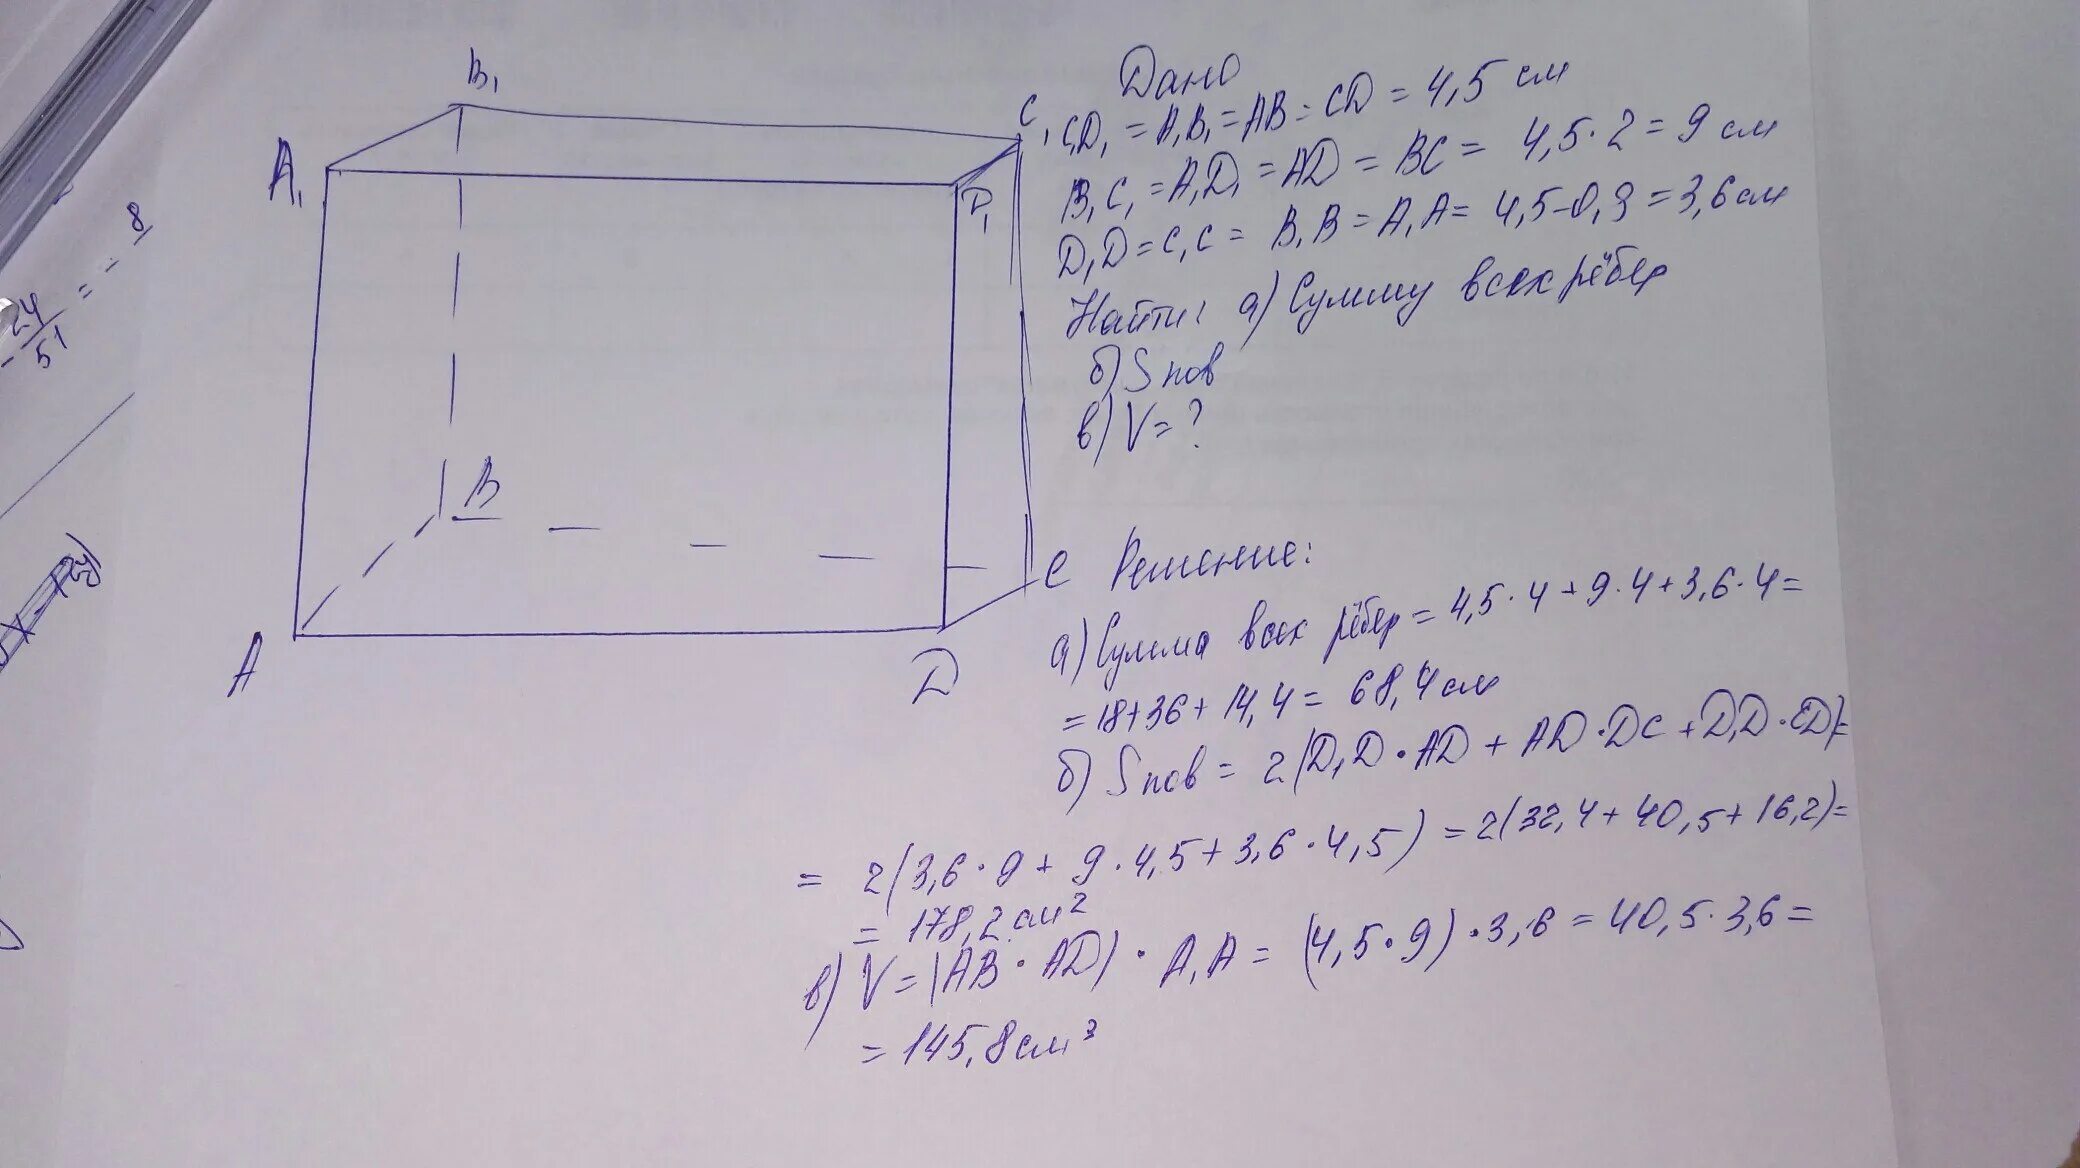 B₁
A₁
C₁
D₁
B
C
A
D
Дано
C₁D₁ = A₁B₁ = AB = CD = 4,5 см
B₁C₁ = A₁D₁ = AD = BC = 4,5·2 = 9 см
D₁D = C₁C = B₁B = A₁A = 4,5-0,9 = 3,6 см
Найти: а) Сумму всех рёбер
б) Sпов
в) V = ?
Решение:
а) Сумма всех рёбер = 4,5·4+9·4+3,6·4=
= 18+36+14,4 = 68,4 см
б) Sпов = 2(D₁D·AD + AD·DC + D₁D·CD)=
= 2(3,6·9 + 9·4,5+3,6·4,5) = 2(32,4+40,5+16,2)=
= 178,2 см²
в) V = (AB·AD)·A₁A = (4,5·9)·3,6 = 40,5·3,6 =
= 145,8 см³
-24/51 = - 8